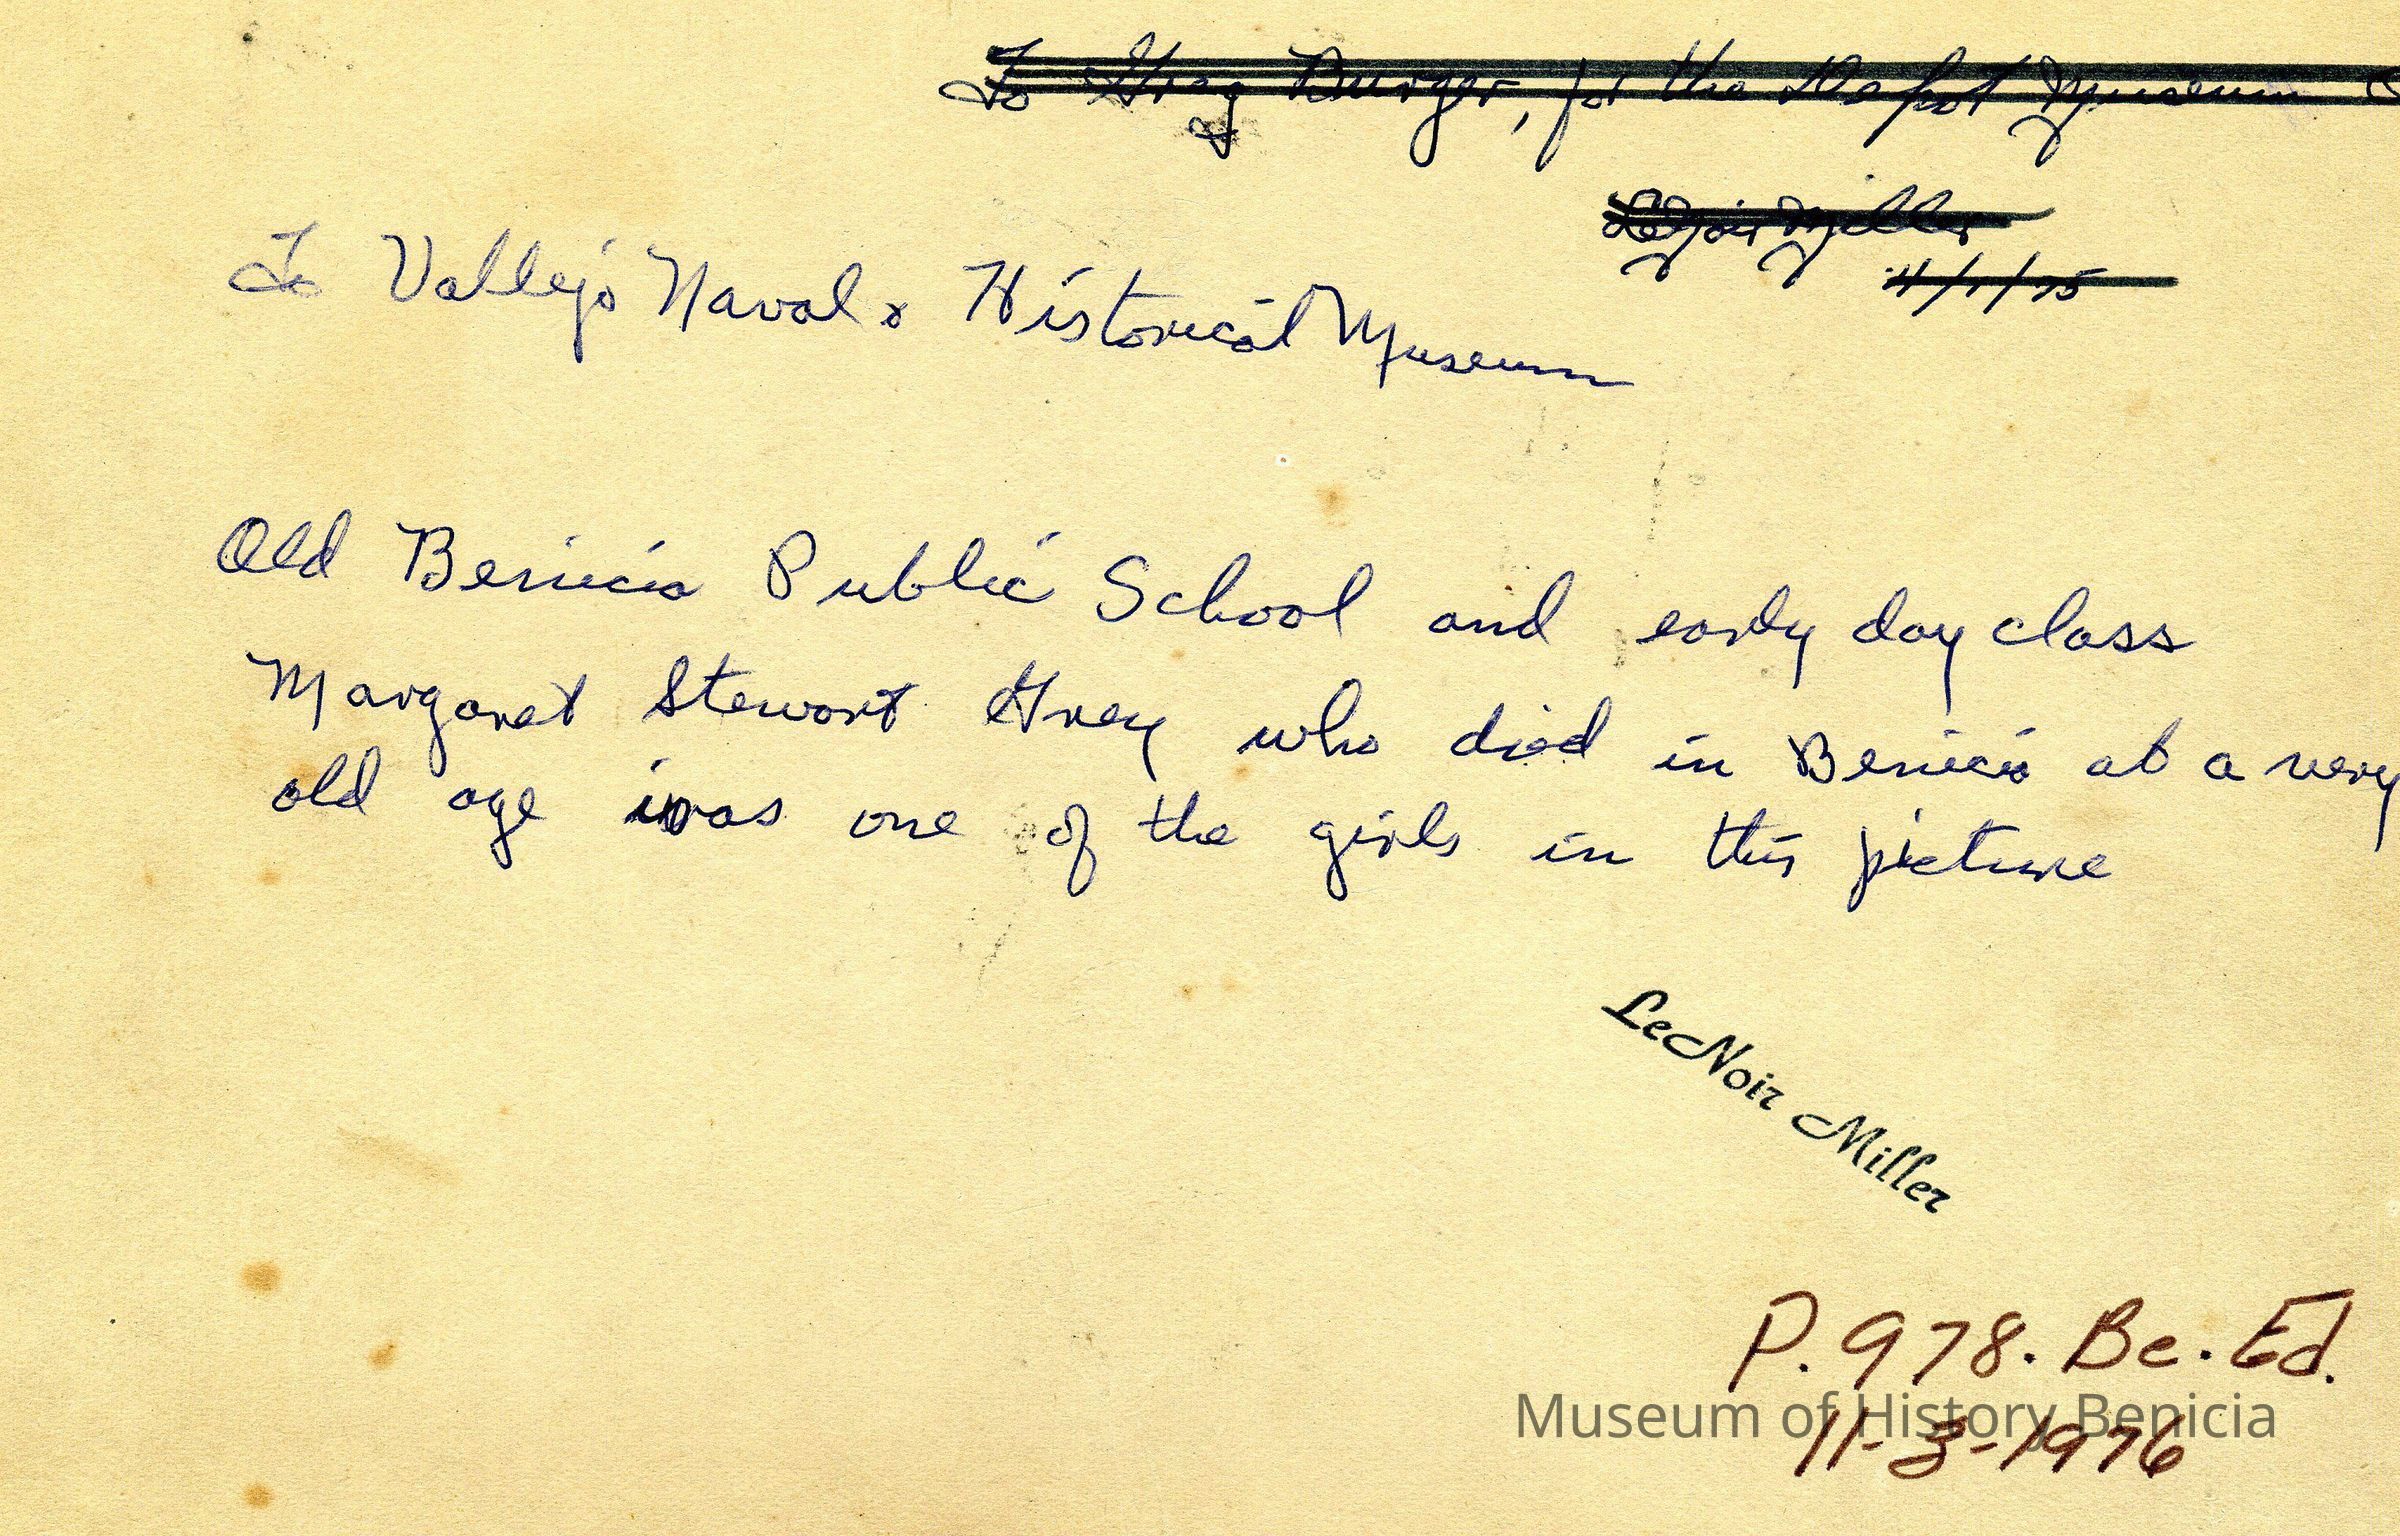 To Greg Burger, for the Depot Museum
LeNoir Miller
11/1/75
To Vallejo Naval & Historical Museum
Old Benicia Public School and early day class
Margaret Stewart Grey who died in Benicia at a very
old age was one of the girls in this picture
LeNoir Miller
P. 978. Be. Ed.
Museum of History Benicia
11-3-1976